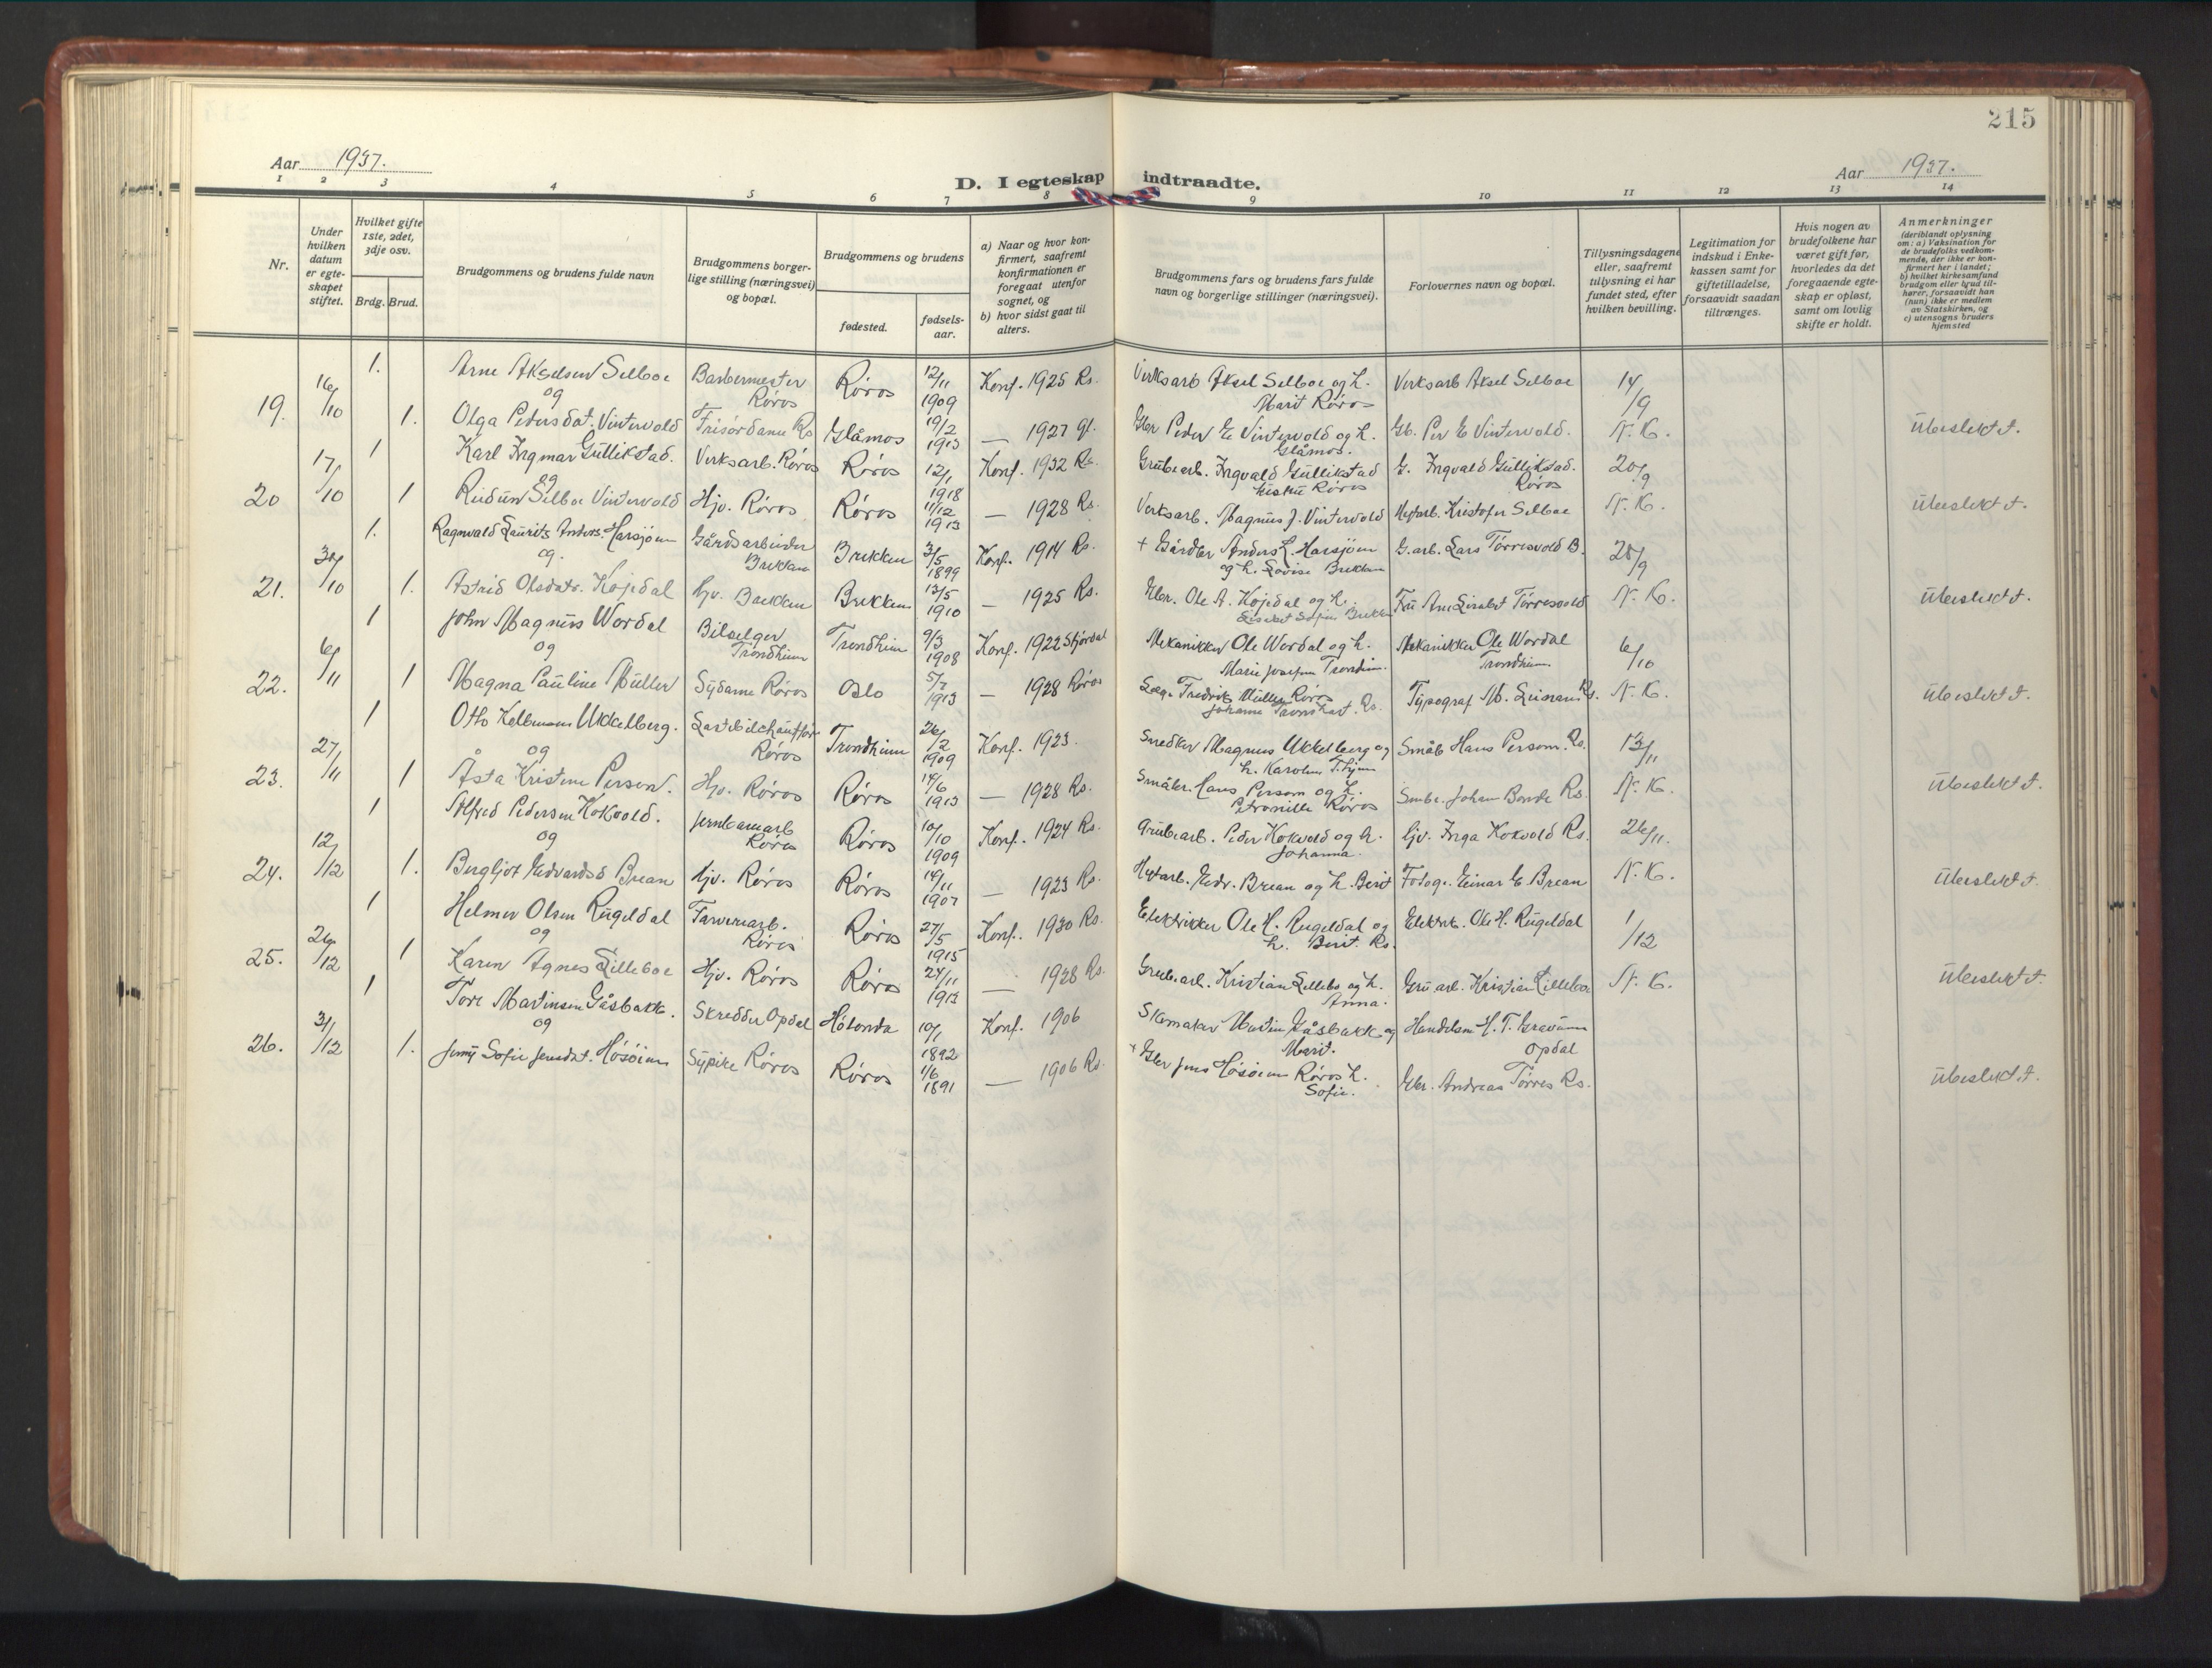 215
Aar 1937.
D. I egteskap indtraadte.
Aar 1937.
1 2 3 4 5 6 7 8 9 10 11 12 13 14
Nr.
Under hvilken datum er egte-skapet stiftet.
Hvilket gifte 1ste, 2det, 3dje osv.
Brdg. Brud.
Brudgommens og brudens fulde navn
Brudgommens borger-lige stilling (næringsvei) og bopæl.
Brudgommens og brudens
fødested.
fødsels-aar.
a) Naar og hvor kon-firmert, saafremt konfirmationen er foregaat utenfor sognet, og
b) hvor sidst gaat til alters.
Brudgommens fars og brudens fars fulde navn og borgerlige stillinger (næringsvei).
Forlovernes navn og bopæl.
Tillysningsdagene eller, saafremt tillysning ei har fundet sted, efter hvilken bevilling.
Legitimation for indskud i Enke-kassen samt for giftetilladelse, forsaavidt saadan tiltrænges.
Hvis nogen av brudefolkene har været gift før, hvorledes da det foregaaende egte-skap er opløst, samt om lovlig skifte er holdt.
Anmerkninger (deriblandt oplysning om: a) Vaksination for de brudefolks vedkom-mende, der ikke er kon-firmert her i landet; b) hvilket kirkesamfund brudgom eller brud til-hører, forsaavidt han (hun) ikke er medlem av Statskirken, og c) utensogns bruders hjemsted
19. 16/10 1. Arne Akselsen Selboe Barbermester Røros Røros 12/11 1909 Konf. 1925 Rs. Verksarb Aksel Selboe og h. Marit Røros Verksarb Aksel Selboe 14/9
og
1. Olga Pedersdat. Vintervold Frisørdame Rs Glåmos 19/2 1913 — 1927 Gl. Gbr Peder E Vintervold og h. Glåmos. Gb. Per E Vintervold. N. K. Ubeslektet.
20 17/10 1 Karl Ingmar Gullikstad. Verksarb. Røros Røros 12/1 1918 Konf. 1932 Rs. Grubearb. Ingvald Gullikstad Røros G. Ingvald Gullikstad. Røros 20/9
og
1 Reidun Selboe Vintervold Hjv. Røros Røros 11/12 1913 — 1928 Rs. Verksarb. Magnus J. Vintervold Hytarb. Kristofer Selboe N. K. Ubeslektet.
21. 30/10 1. Ragnvald Laurits Anders. Harsjøen Gårdsarbeider Brekken Brekken 3/5 1899 Konf. 1914 Rs. + Gårdbr Anders L. Harsjøen og h. Lovise Brekken G.arb. Lars Tørresvold B. 25/9
og.
1. Astrid Olsdatr. Kojedal Hjv. Brekken Brekken 13/5 1910 — 1925 Rs. Gbr. Ole A. Kojedal og h. Lisabet Sofie Brekken Fru Ane Lisabet Tørresvold N. K. Ubeslektet.
22. 6/11 1 John Magnus Wordal Bilselger Trondheim Trondheim 9/3 1908 Konf. 1922 Stjørdal Mekanikker Ole Wordal og h. Marie Josefine Trondheim. Mekanikker Ole Wordal Trondheim 6/10
og
1 Magna Pauline Müller Sydame Røros Oslo 5/7 1913 — 1928 Røros Fredrik Müller Røros Johanne Rs. Typograf M. Leinan Rs. N. K. Ubeslektet.
23. 27/11 1 Otto Kelbmann Ukkelberg. Lastebilchauffør Røros Trondheim 26/2 1909 Konf. 1923. Snedker Magnus Ukkelberg og h. Karoline T.hjem Småb Hans Person. Rs. 13/11
og
1 Åsta Kristine Person. Hjv. Røros Røros 14/6 1913 — 1928 Rs. Småbr. Hans Person og h. Petronille Røros Småbr. Johan Borde Rs. N. K. Ubeslektet.
24. 12/12 1 Alfred Pedersen Kokvold. Jernbanearb Røros Røros 10/10 1909 Konf. 1924 Rs. Grubearb. Peder Kokvold og h. Johanna. Hjv. Inga Kokvold Rs. 26/11.
og
1. Bergljot Edvardsd Brean Hjv. Røros Røros 14/11 1907 — 1923 Rs. Hytarb. Edv. Brean og h. Berit Fotogr. Einar E Brean N. K. Ubeslektet.
25. 26/12 1 Helmer Olsen Rugeldal Farveriarb. Røros Røros 27/5 1915 Konf. 1930 Rs. Elektrikker Ole H. Rugeldal og h. Berit. Rs. Elektrk. Ole H. Rugeldal 1/12
og
1 Karen Agnes Lilleboe Hjv. Røros Røros 24/11 1913 — 1928 Rs. Grubearb. Kristian Lillebo og h. Anna. Gru arb. Kristian Lilleboe N. K. Ubeslektet.
26. 31/12 1 Tore Martinsen Gåsbakk. Skredder Opdal Hølonda 10/1 1892 Konf. 1906 Skomaker Martin Gåsbakk og Marit. Handelsm H. T. Opdal
og
1. Jenny Sofie Jensdat. Høsøien Sypike Røros Røros 1/6 1891 — 1906 Rs. + Gbr Jens Høsøien Røros h. Sofie. Gbr. Andreas Tørres Rs. Ubeslekt.t.